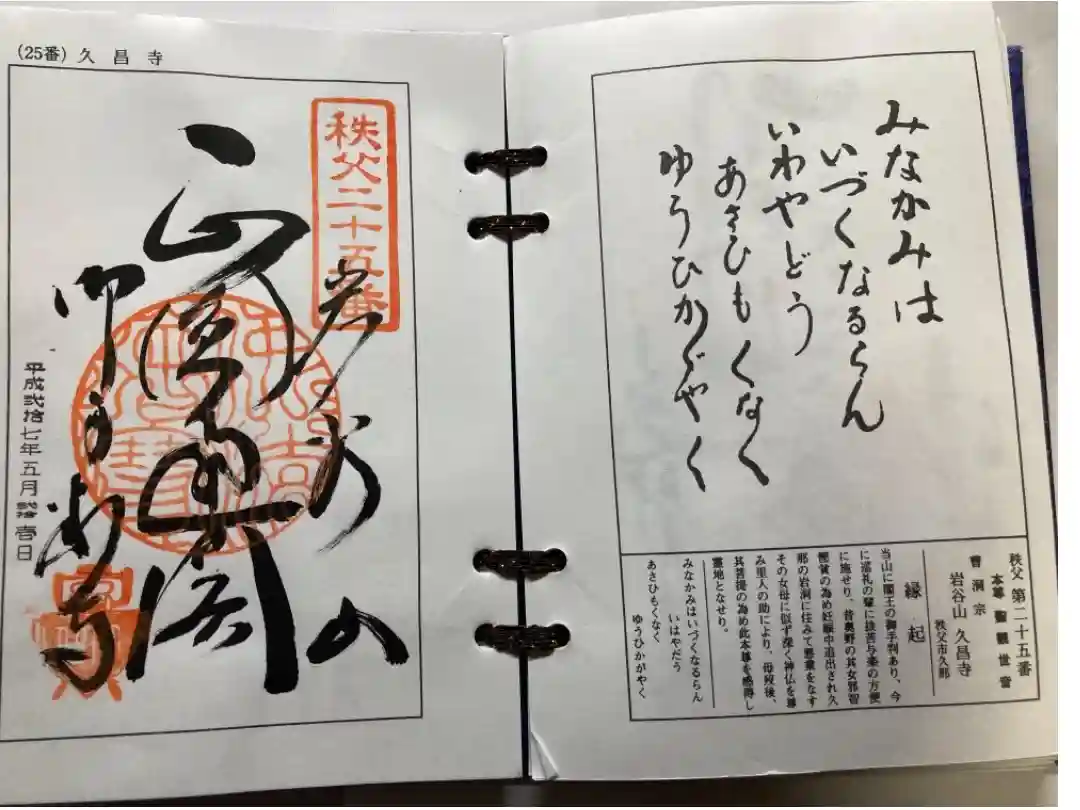 (25番) 久昌寺
秩父二十五番
平成弐拾七年五月弐拾壱日
みなかみは
いづくなるらん
いわやどう
あさひもくなく
ゆうひかゞやく
秩父 第二十五番
本尊 聖観世音
曹洞宗
岩谷山 久昌寺
秩父市久那
縁起
当山に閻王の御手判あり、今
に巡礼の輩に抜苦与楽の方便
に施せり、昔奥野の其女邪智
慳貪の為め妊娠中追出され久
那の岩洞に住みて悪業をなす
その女母に似ず深く神仏を尊
み里人の助により、母歿後、
其菩提の為め此本尊を感得し
霊地となせり。
みなかみはいづくなるらん
いはやだう
あさひもくなく
ゆうひかがやく